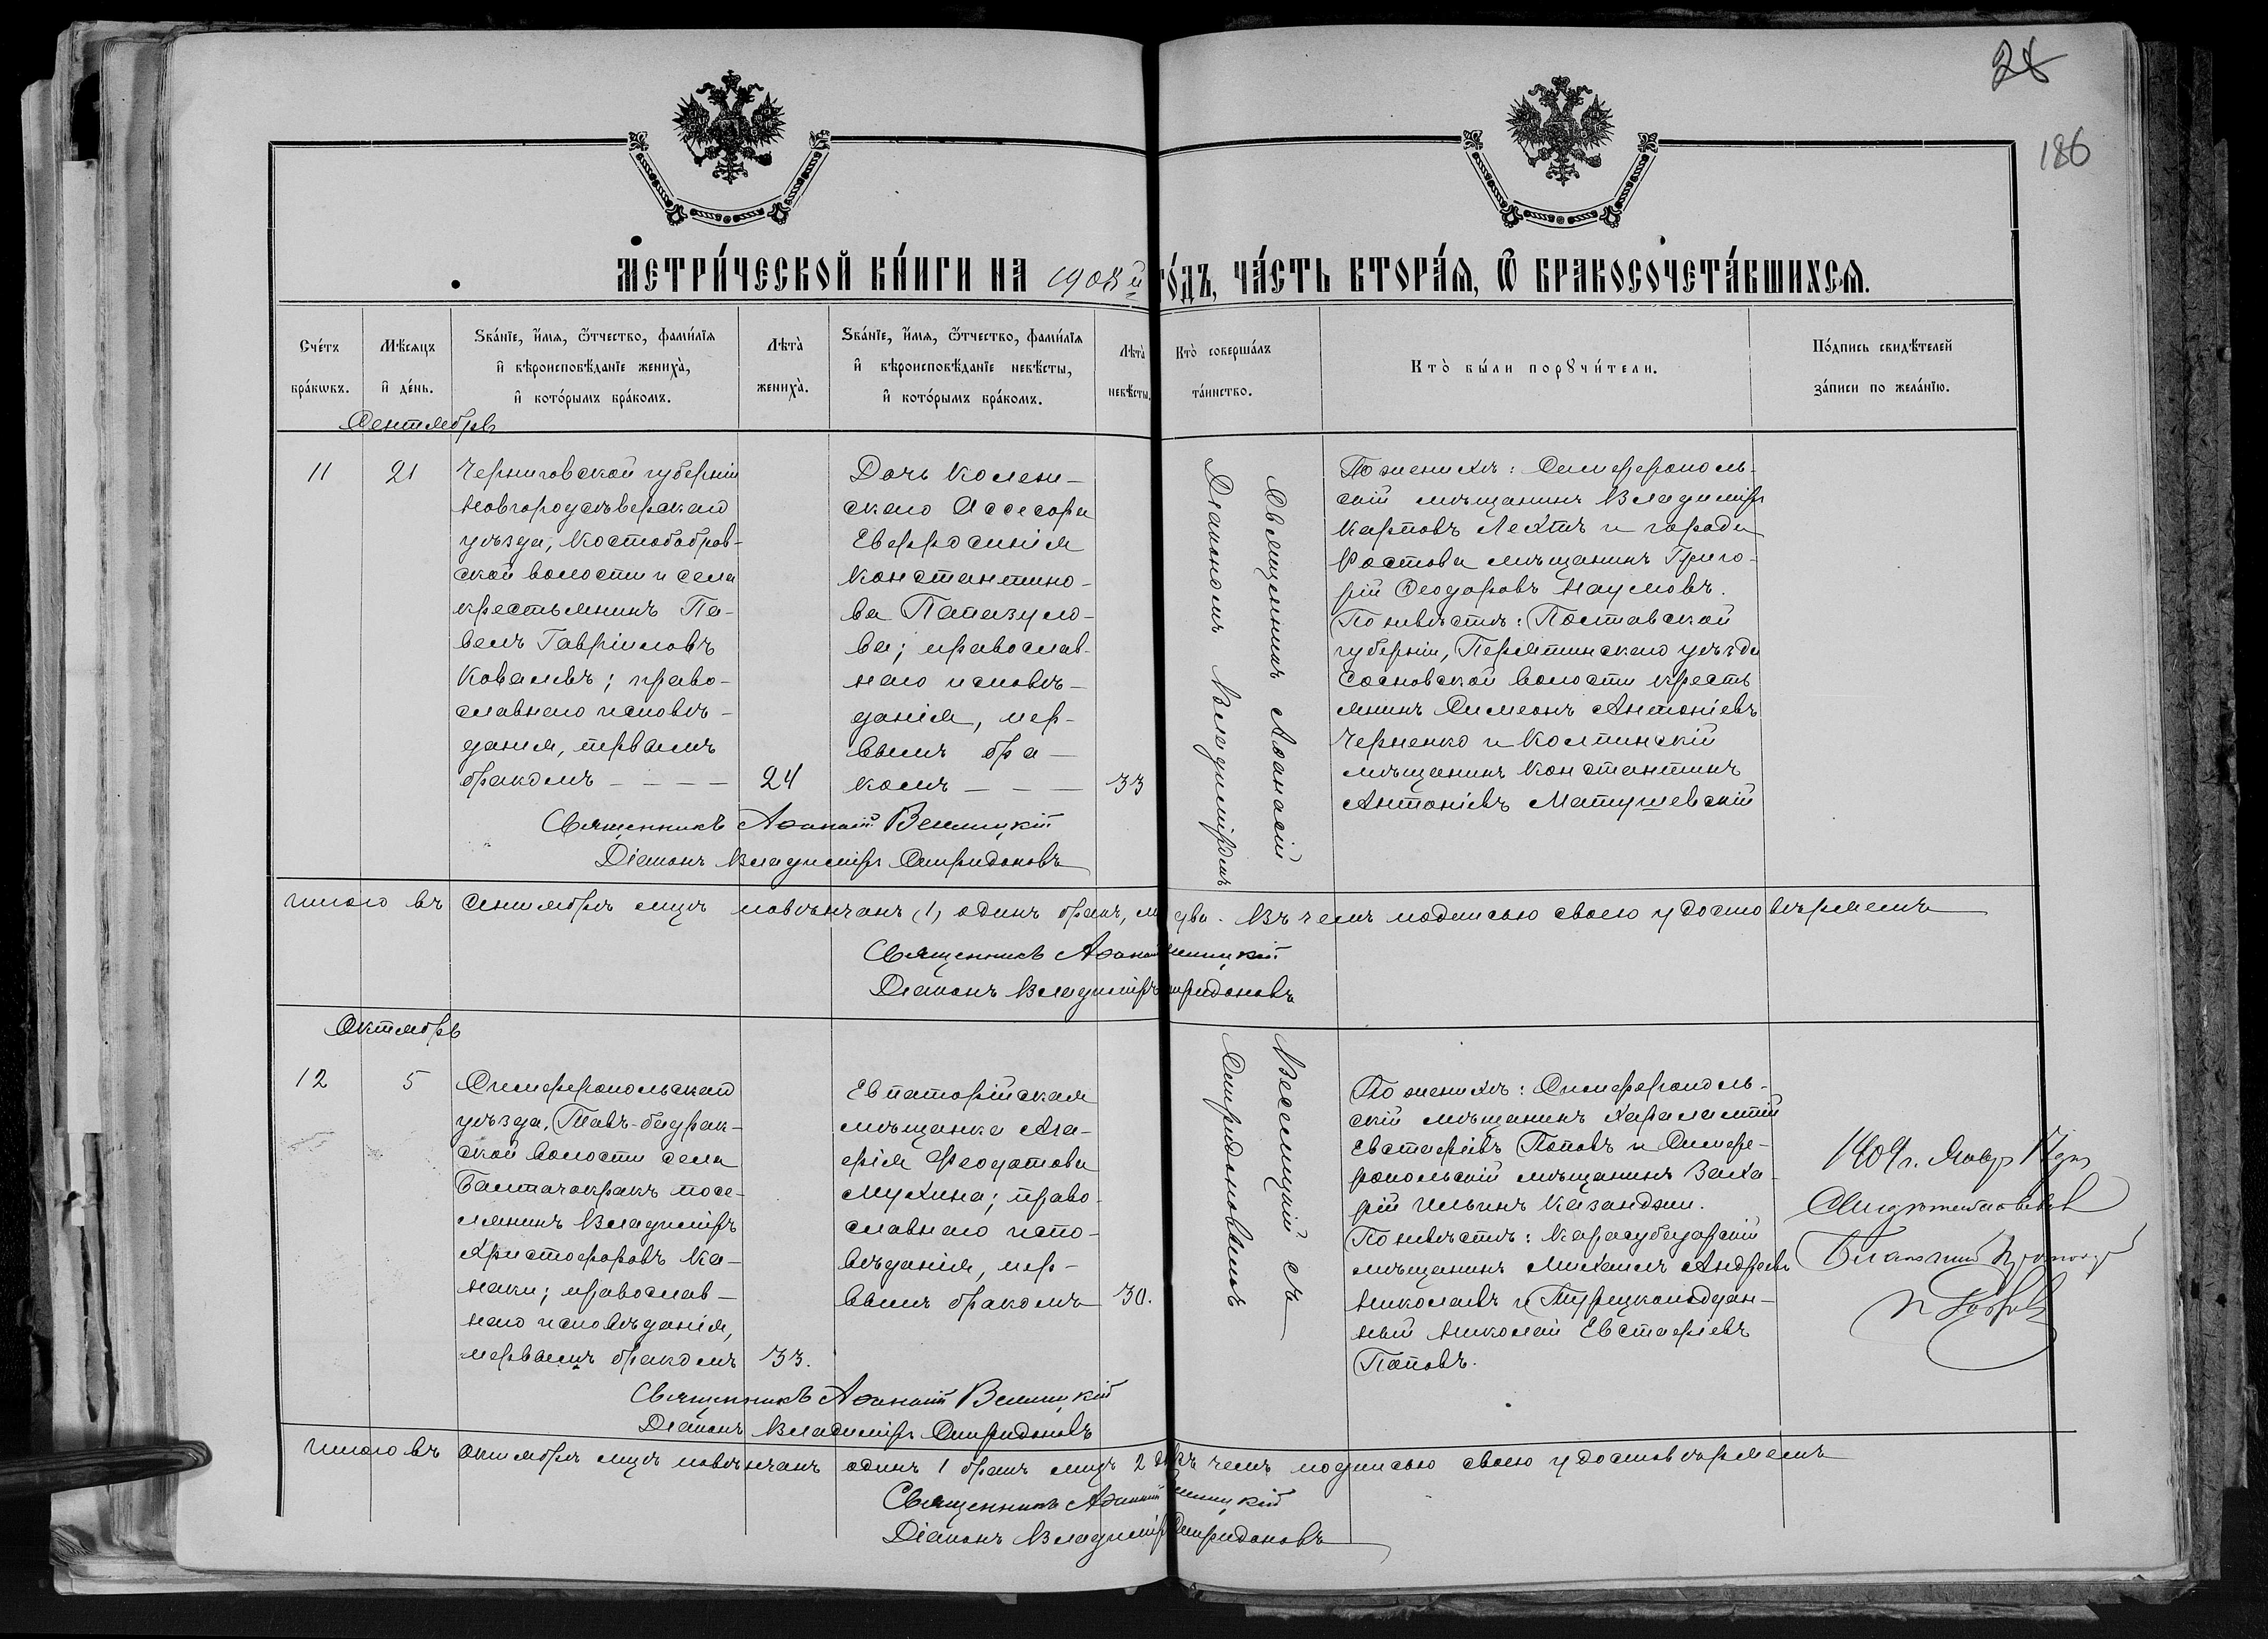 28
186
МЕТРИ́ЧЕСКОЙ КНИ́ГИ НА 1908й ГО́ДЪ, ЧА́СТЬ ВТОРА́Я, Ѿ БРАКОСОЧЕТА́ВШИХСЯ.
Сче́тъ бра́кѡвъ.
Мѣ́сяцъ и҆ де́нь.
Ѕва́нїе, и҆́мя, ѻ҆́тчество, фами́лїя и҆ вѣроисповѣ́данїе жениха̀, и҆ кото́рымъ бра́комъ.
Лѣта̀ жениха̀.
Ѕва́нїе, и҆́мя, ѻ҆́тчество, фами́лїя и҆ вѣроисповѣ́данїе невѣ́сты, и҆ кото́рымъ бра́комъ.
Лѣта̀ невѣ́сты.
Кто̀ соверша́лъ та́инство.
Кто̀ бы́ли порꙋчи́тели.
По́дпись свидѣ́телей за́писи по жела́нїю.
Сентябрь
11
21
Черниговской губерніи
Новгородсѣверскаго
уѣзда, Костобобров-
ской волости и села
крестьянинъ Па-
велъ Гавріиловъ
Ковалевъ; право-
славнаго исповѣ-
данія, первымъ
бракомъ
24
Дочь Колеж-
скаго Ассесора
Евфросинія
Константино-
ва Папазуло-
ва; православ-
наго исповѣ-
данія, пер-
вымъ бра-
комъ
33
Священникъ Аѳанасій
Діакономъ Владиміромъ
По женихѣ: Симферополь-
скій мѣщанинъ Владиміръ
Карповъ Лехтъ и города
Ростова мѣщанинъ Григо-
рій Ѳеодоровъ Наумовъ.
По невѣстѣ: Полтавской
губерніи, Пирятинскаго уѣзда
Сосновской волости кресть
янинъ Симеонъ Антоніевъ
Черненко и Колпинскій
мѣщанинъ Константинъ
Антоніевъ Матушевскій
Священникъ Аѳанасій Веселицкій
Діаконъ Владиміръ Спиридоновъ
Итого въ Сентябрѣ мцѣ повѣнчанъ (1) одинъ бракъ, два. Въ чемъ подписью своею удостовѣряемъ
Священникъ Аѳанасій Веселицкій
Діаконъ Владиміръ Спиридоновъ
Октябрь
12
5
Симферопольскаго
уѣзда, Тавъ-бадрак-
ской волости села
Балтачокракъ посе-
лянинъ Владиміръ
Христофоровъ Ка-
наки; православ-
наго исповѣданія,
первымъ бракомъ
33.
Евпаторійская
мѣщанка Ага-
фія Ѳеодотова
Мухина; право-
славнаго испо-
вѣданія, пер-
вымъ бракомъ
30.
Веселицкій съ
Спиридоновымъ
По женихѣ: Симферополь-
скій мѣщанинъ Харалампій
Евстафіевъ Поповъ и Симфе-
ропольскій мѣщанинъ Заха-
рій Ильинъ Казанджи.
По невѣстѣ: Карасубазарскій
мѣщанинъ Михаилъ Андреевъ
Николаевъ и Турецкоподдан-
ный Николай Евстафіевъ
Поповъ.
1909 г. Январ 17 дня
Свидѣтельствовалъ
Благочинный Протоіер
Священникъ Аѳанасій Веселицкій
Діаконъ Владиміръ Спиридоновъ
Итого въ октябрѣ мцѣ повѣнчанъ одинъ 1 бракъ лицъ 2 въ чемъ подписью своею удостовѣряемъ
Священникъ Аѳанасій Веселицкій
Діаконъ Владиміръ Спиридоновъ